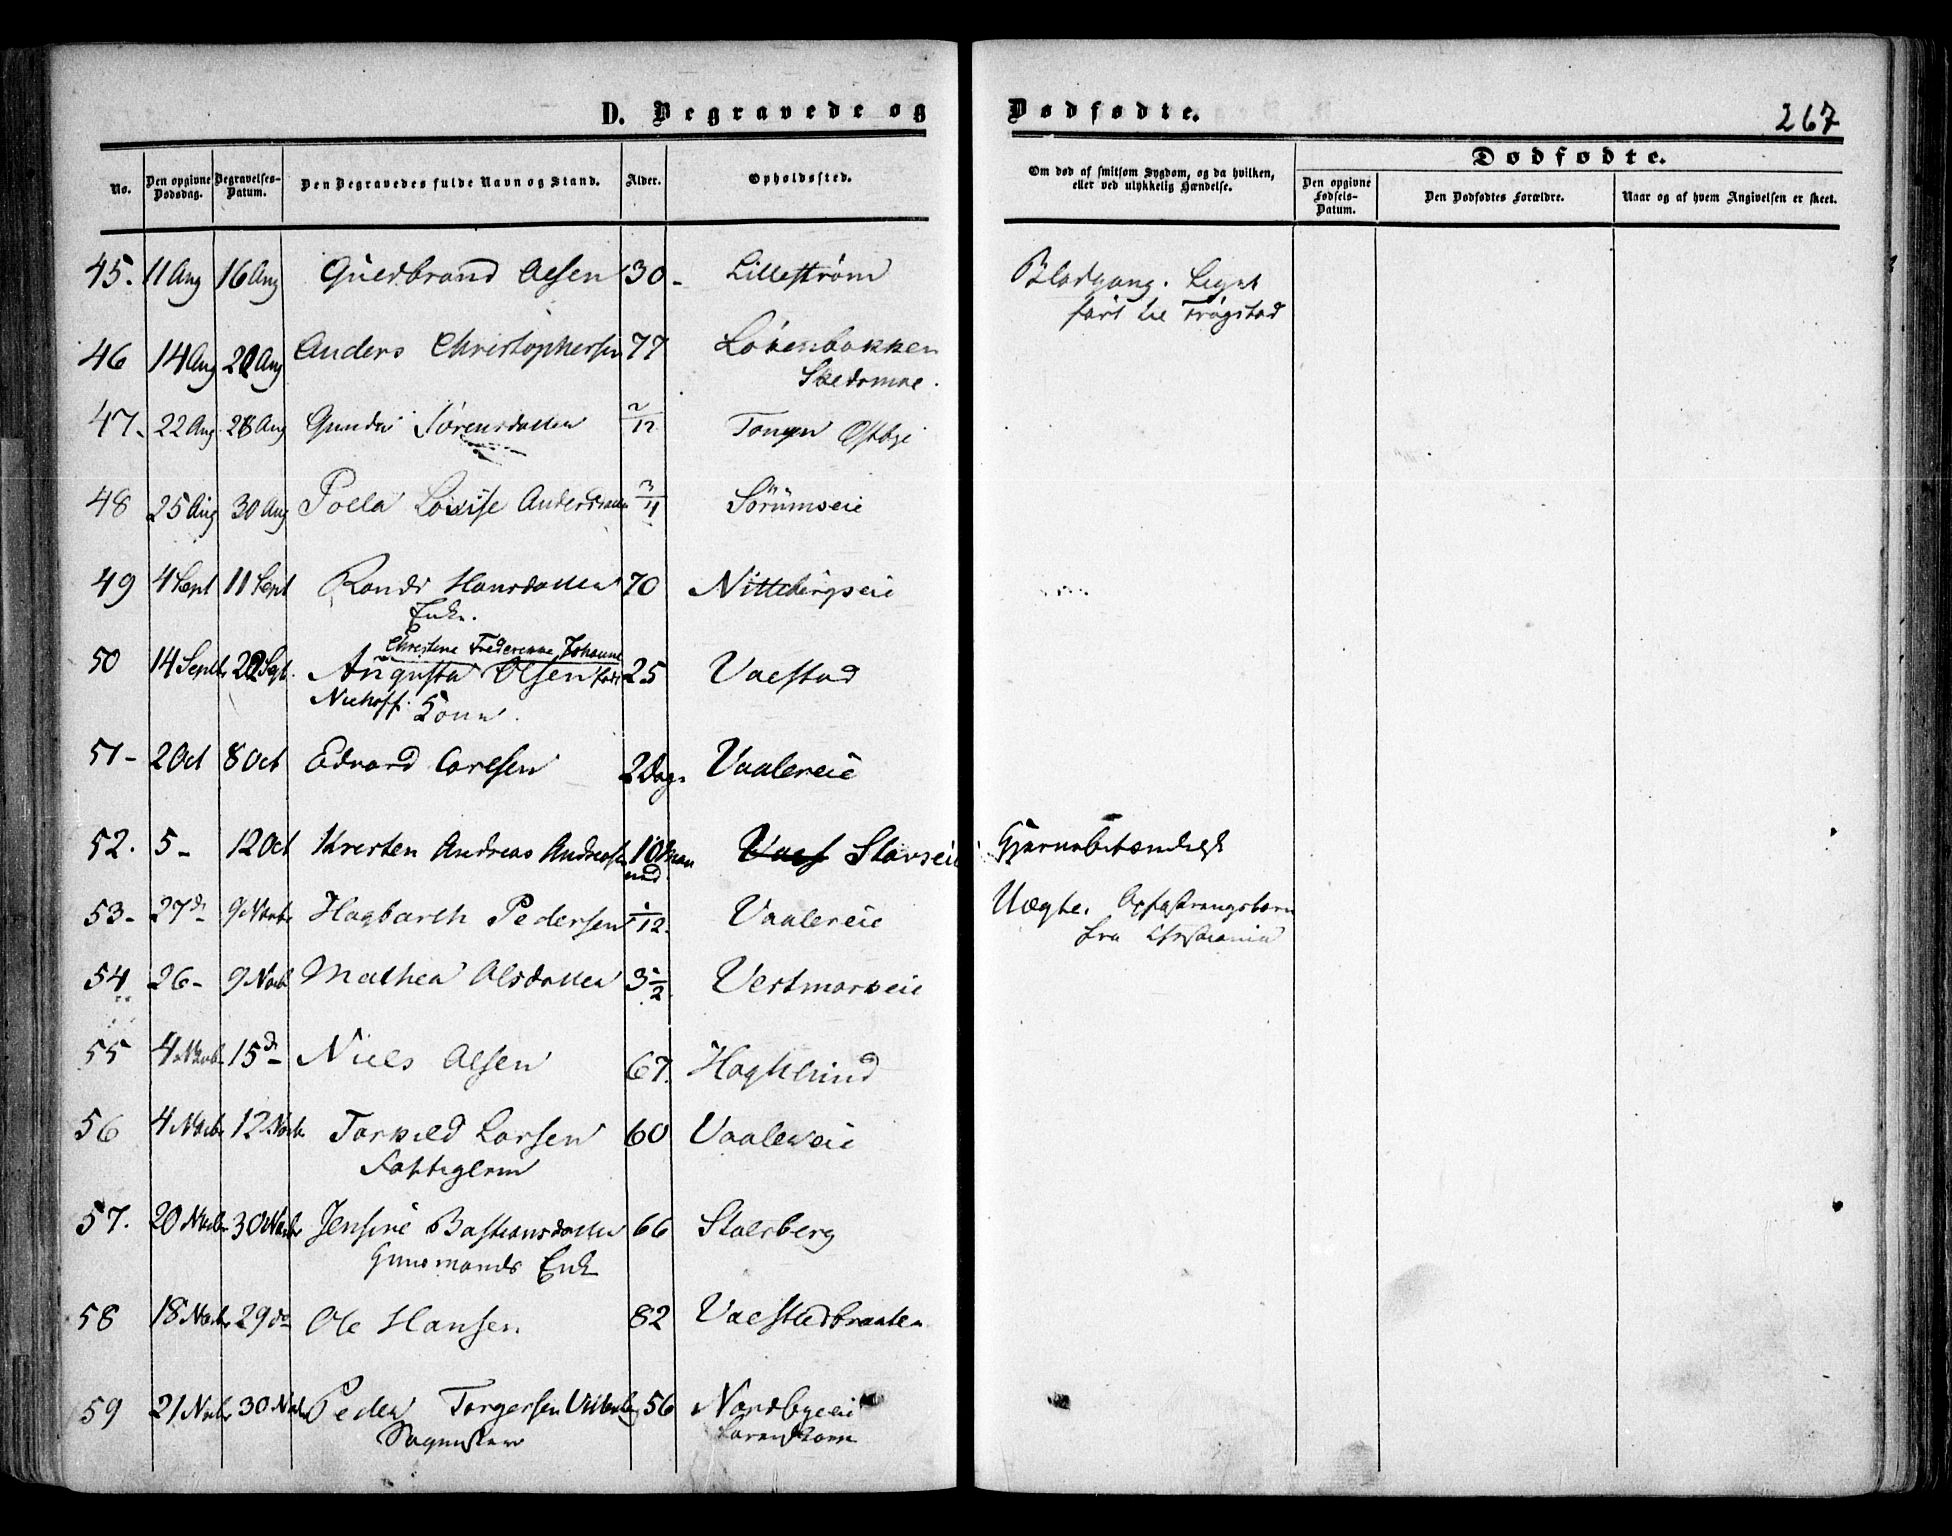 D. Begravede og Dødfødte. 267
No. Den opgivne Dødsdag. Begravelses-Datum. Den Begravedes fulde Navn og Stand. Alder. Opholdssted. Om død af smitsom Sygdom, og da hvilken, eller ved ulykkelig Hændelse. Dødfødte.
Den opgivne Fødsels-Datum. Den Dødfødtes Forældre. Naar og af hvem Angivelsen er skeet.
45. 11 Aug 16 Aug Gudbrand Olsen 30 - Lillestrøm Blodgang. Liget
ført til Trøgstad
46 14 Aug 20 Aug Anders Christophersen 77 Løkenbakken
Skedsmoe.
47. 22 Aug 28 Aug Gunda Sørensdatter 2/12 Østbye
48 25 Aug 30 Aug Lovise Andersdatter 3/4 Sørumseie
49 4 Sept 11 Sept Randi Hansdatter 70 Nittebergseie
Enke.
Christine Johanne
50 14 Septbr Sept. Augusta Olsen født 25 Valstad
Niehoff. Kone.
51- 2 Oct 8 Oct Edvard Carlsen 2 Dage Vaalereie
52. 5 - 12 Oct Kristen Andreas Andreasen 10 Maaned. Stavseie Hjernebetændelse
53- 27 d - 9 Novbr Hagbarth Pedersen 1/12. Vaalereie Uægte. Opfostringsbarn
fra Christiania
54 26 - 9 Novb Mathea Olsdatter 3 1/2 Vestmarkseie
55 4 Novb 15 d - Niels Olsen 67.
56 4 Novbr 12 Novbr Torkild Larsen 60 Vaalereie
Fattiglem
57. 20 Novbr 30 Novbr Jensine Bastiansdatter 66 Stalsberg
Gaardmands Enke
58 18 Novbr 29 do Ole Hansen 82 Valstadbraaten
59 21 Novbr 30 Novbr Peder Torgersen 56 Nordbyeie
Lørenskoven